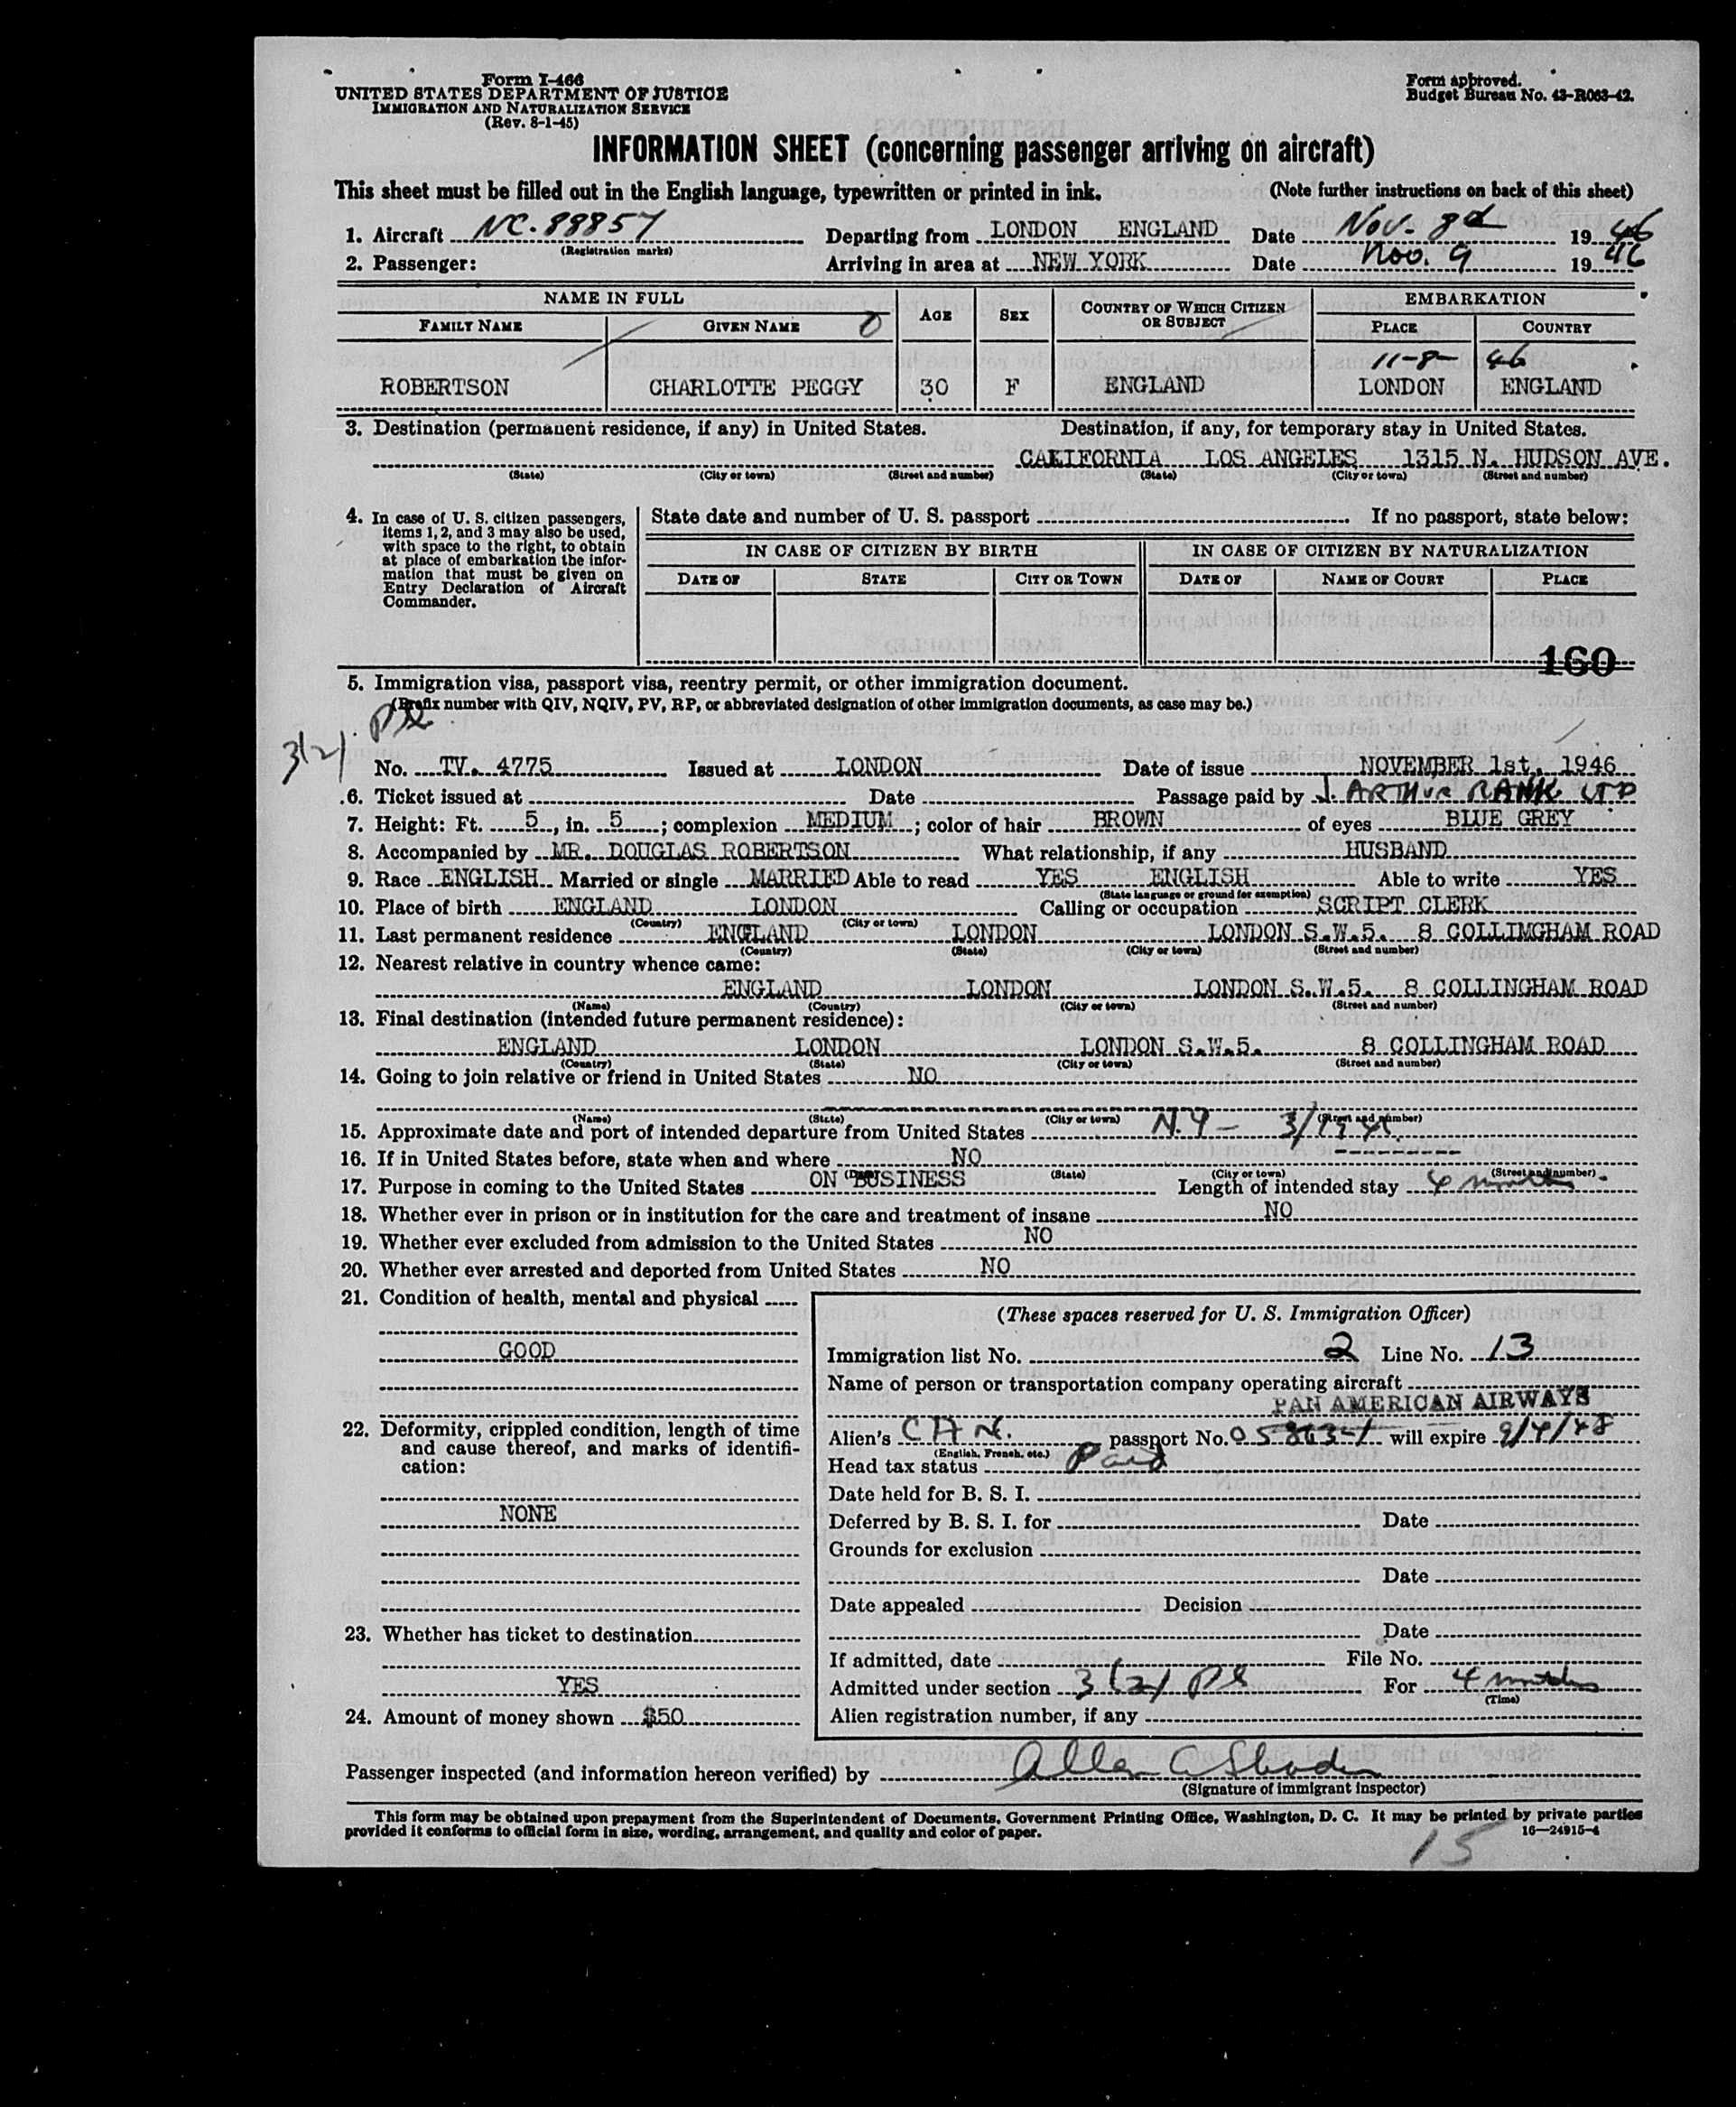 Form I-466
UNITED STATES DEPARTMENT OF JUSTICE
IMMIGRATION AND NATURALIZATION SERVICE
(Rev. 8-1-45)
Form approved.
Budget Bureau No. 43-R063-42.
INFORMATION SHEET (concerning passenger arriving on aircraft)
This sheet must be filled out in the English language, typewritten or printed in ink. (Note further instructions on back of this sheet)
1. Aircraft NC-88857 Departing from LONDON ENGLAND Date Nov. 8d 1946
(Registration marks)
2. Passenger: Arriving in area at NEW YORK Date Nov. 9 1946
NAME IN FULL AGE SEX COUNTRY OF WHICH CITIZEN OR SUBJECT EMBARKATION
FAMILY NAME GIVEN NAME PLACE COUNTRY
11-8-46
ROBERTSON CHARLOTTE PEGGY 30 F ENGLAND LONDON ENGLAND
3. Destination (permanent residence, if any) in United States. Destination, if any, for temporary stay in United States.
CALIFORNIA LOS ANGELES 1315 N. HUDSON AVE.
(State) (City or town) (Street and number) (State) (City or town) (Street and number)
4. In case of U. S. citizen passengers, items 1, 2, and 3 may also be used, with space to the right, to obtain at place of embarkation the information that must be given on Entry Declaration of Aircraft Commander.
State date and number of U. S. passport If no passport, state below:
IN CASE OF CITIZEN BY BIRTH IN CASE OF CITIZEN BY NATURALIZATION
DATE OF STATE CITY OR TOWN DATE OF NAME OF COURT PLACE
160
5. Immigration visa, passport visa, reentry permit, or other immigration document.
(Prefix number with QIV, NQIV, PV, RP, or abbreviated designation of other immigration documents, as case may be.)
3(2)
No. TV. 4775 Issued at LONDON Date of issue NOVEMBER 1st, 1946
6. Ticket issued at Date Passage paid by J. ARTHUR RANK LTD
7. Height: Ft. 5, in. 5; complexion MEDIUM; color of hair BROWN of eyes BLUE GREY
8. Accompanied by MR. DOUGLAS ROBERTSON What relationship, if any HUSBAND
9. Race ENGLISH Married or single MARRIED Able to read YES ENGLISH Able to write YES
(State language or ground for exemption)
10. Place of birth ENGLAND LONDON Calling or occupation SCRIPT CLERK
(Country) (City or town)
11. Last permanent residence ENGLAND LONDON LONDON S.W.5. 8 COLLIMGHAM ROAD
(Country) (State) (City or town) (Street and number)
12. Nearest relative in country whence came:
ENGLAND LONDON LONDON S.W.5. 8 COLLINGHAM ROAD
(Name) (Country) (City or town) (Street and number)
13. Final destination (intended future permanent residence):
ENGLAND LONDON LONDON S.W.5. 8 COLLINGHAM ROAD
(Country) (State) (City or town) (Street and number)
14. Going to join relative or friend in United States NO
(Name) (State) (City or town) (Street and number)
15. Approximate date and port of intended departure from United States N.Y -
16. If in United States before, state when and where NO
(Date) (State) (City or town) (Street and number)
17. Purpose in coming to the United States ON BUSINESS Length of intended stay 4 months
18. Whether ever in prison or in institution for the care and treatment of insane NO
19. Whether ever excluded from admission to the United States NO
20. Whether ever arrested and deported from United States NO
21. Condition of health, mental and physical
GOOD
22. Deformity, crippled condition, length of time and cause thereof, and marks of identification:
NONE
23. Whether has ticket to destination
YES
24. Amount of money shown $50
(These spaces reserved for U. S. Immigration Officer)
Immigration list No. 2 Line No. 13
Name of person or transportation company operating aircraft
PAN AMERICAN AIRWAYS
Alien's passport No. will expire 9/4/48
(English, French, etc.)
Head tax status Paid
Date held for B. S. I.
Deferred by B. S. I. for Date
Grounds for exclusion
Date
Date appealed Decision
Date
If admitted, date File No.
Admitted under section 3(2) For 4 months
(Time)
Alien registration number, if any
Passenger inspected (and information hereon verified) by
(Signature of immigrant inspector)
This form may be obtained upon prepayment from the Superintendent of Documents, Government Printing Office, Washington, D. C. It may be printed by private parties
provided it conforms to official form in size, wording, arrangement, and quality and color of paper.
16—24915-4
15